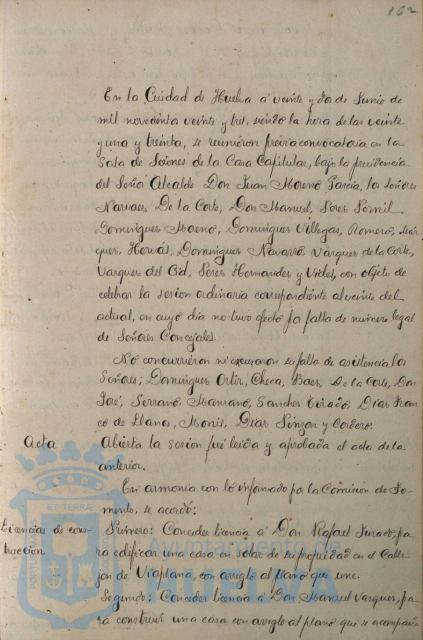 162
En la Ciudad de Huelva á veinte y dos de Junio de
mil novecientos veinte y tres, siendo la hora de las veinte
y una y treinta, se reunieron previa convocatoria en la
Sala de Sesiones de la Casa Capitular, bajo la presidencia
del Señor Alcalde Don Juan Moreno García, los señores
Narvaez De la Corte, Don Manuel, Perez
Dominguez Moreno, Dominguez Villegas, Romero, Már
quez, Hervás, Dominguez Navarro, Vazquez de la Corte,
Vazquez del Cid, Perez Hernandez y Vides, con objeto de
celebrar la sesion ordinaria correspondiente al veinte del
actual, en cuyo dia no tuvo efecto por falta de número legal
de Señores Concejales.
No concurrieron ni escusaron su falta de asistencia los
Señores; Dominguez Ortiz, Checa, Baez, De la Corte, Don
José, Serrano, Manzano, Sanchez Tirado, Diaz Fran
co de Llanos, Monis, Diaz Pinzon y Cordero.
Acta Abierta la sesion fué leida y aprobada el acta de la
anterior.
En armonia con lo informado por la Comision de Fo-
mento, se acordó:
Licencias de cons-
truccion.
Primero: Conceder licencia á Don Rafael Jurado, pa
rá edificar una casa en solar de su propiedad en el Calle-
jon de Viaplana, con arreglo al plano que une.
Segundo: Conceder licencia á Don Manuel Vazquez, pa
rá construir una casa con arreglo al plano que se acompaña
ET TERRÆ